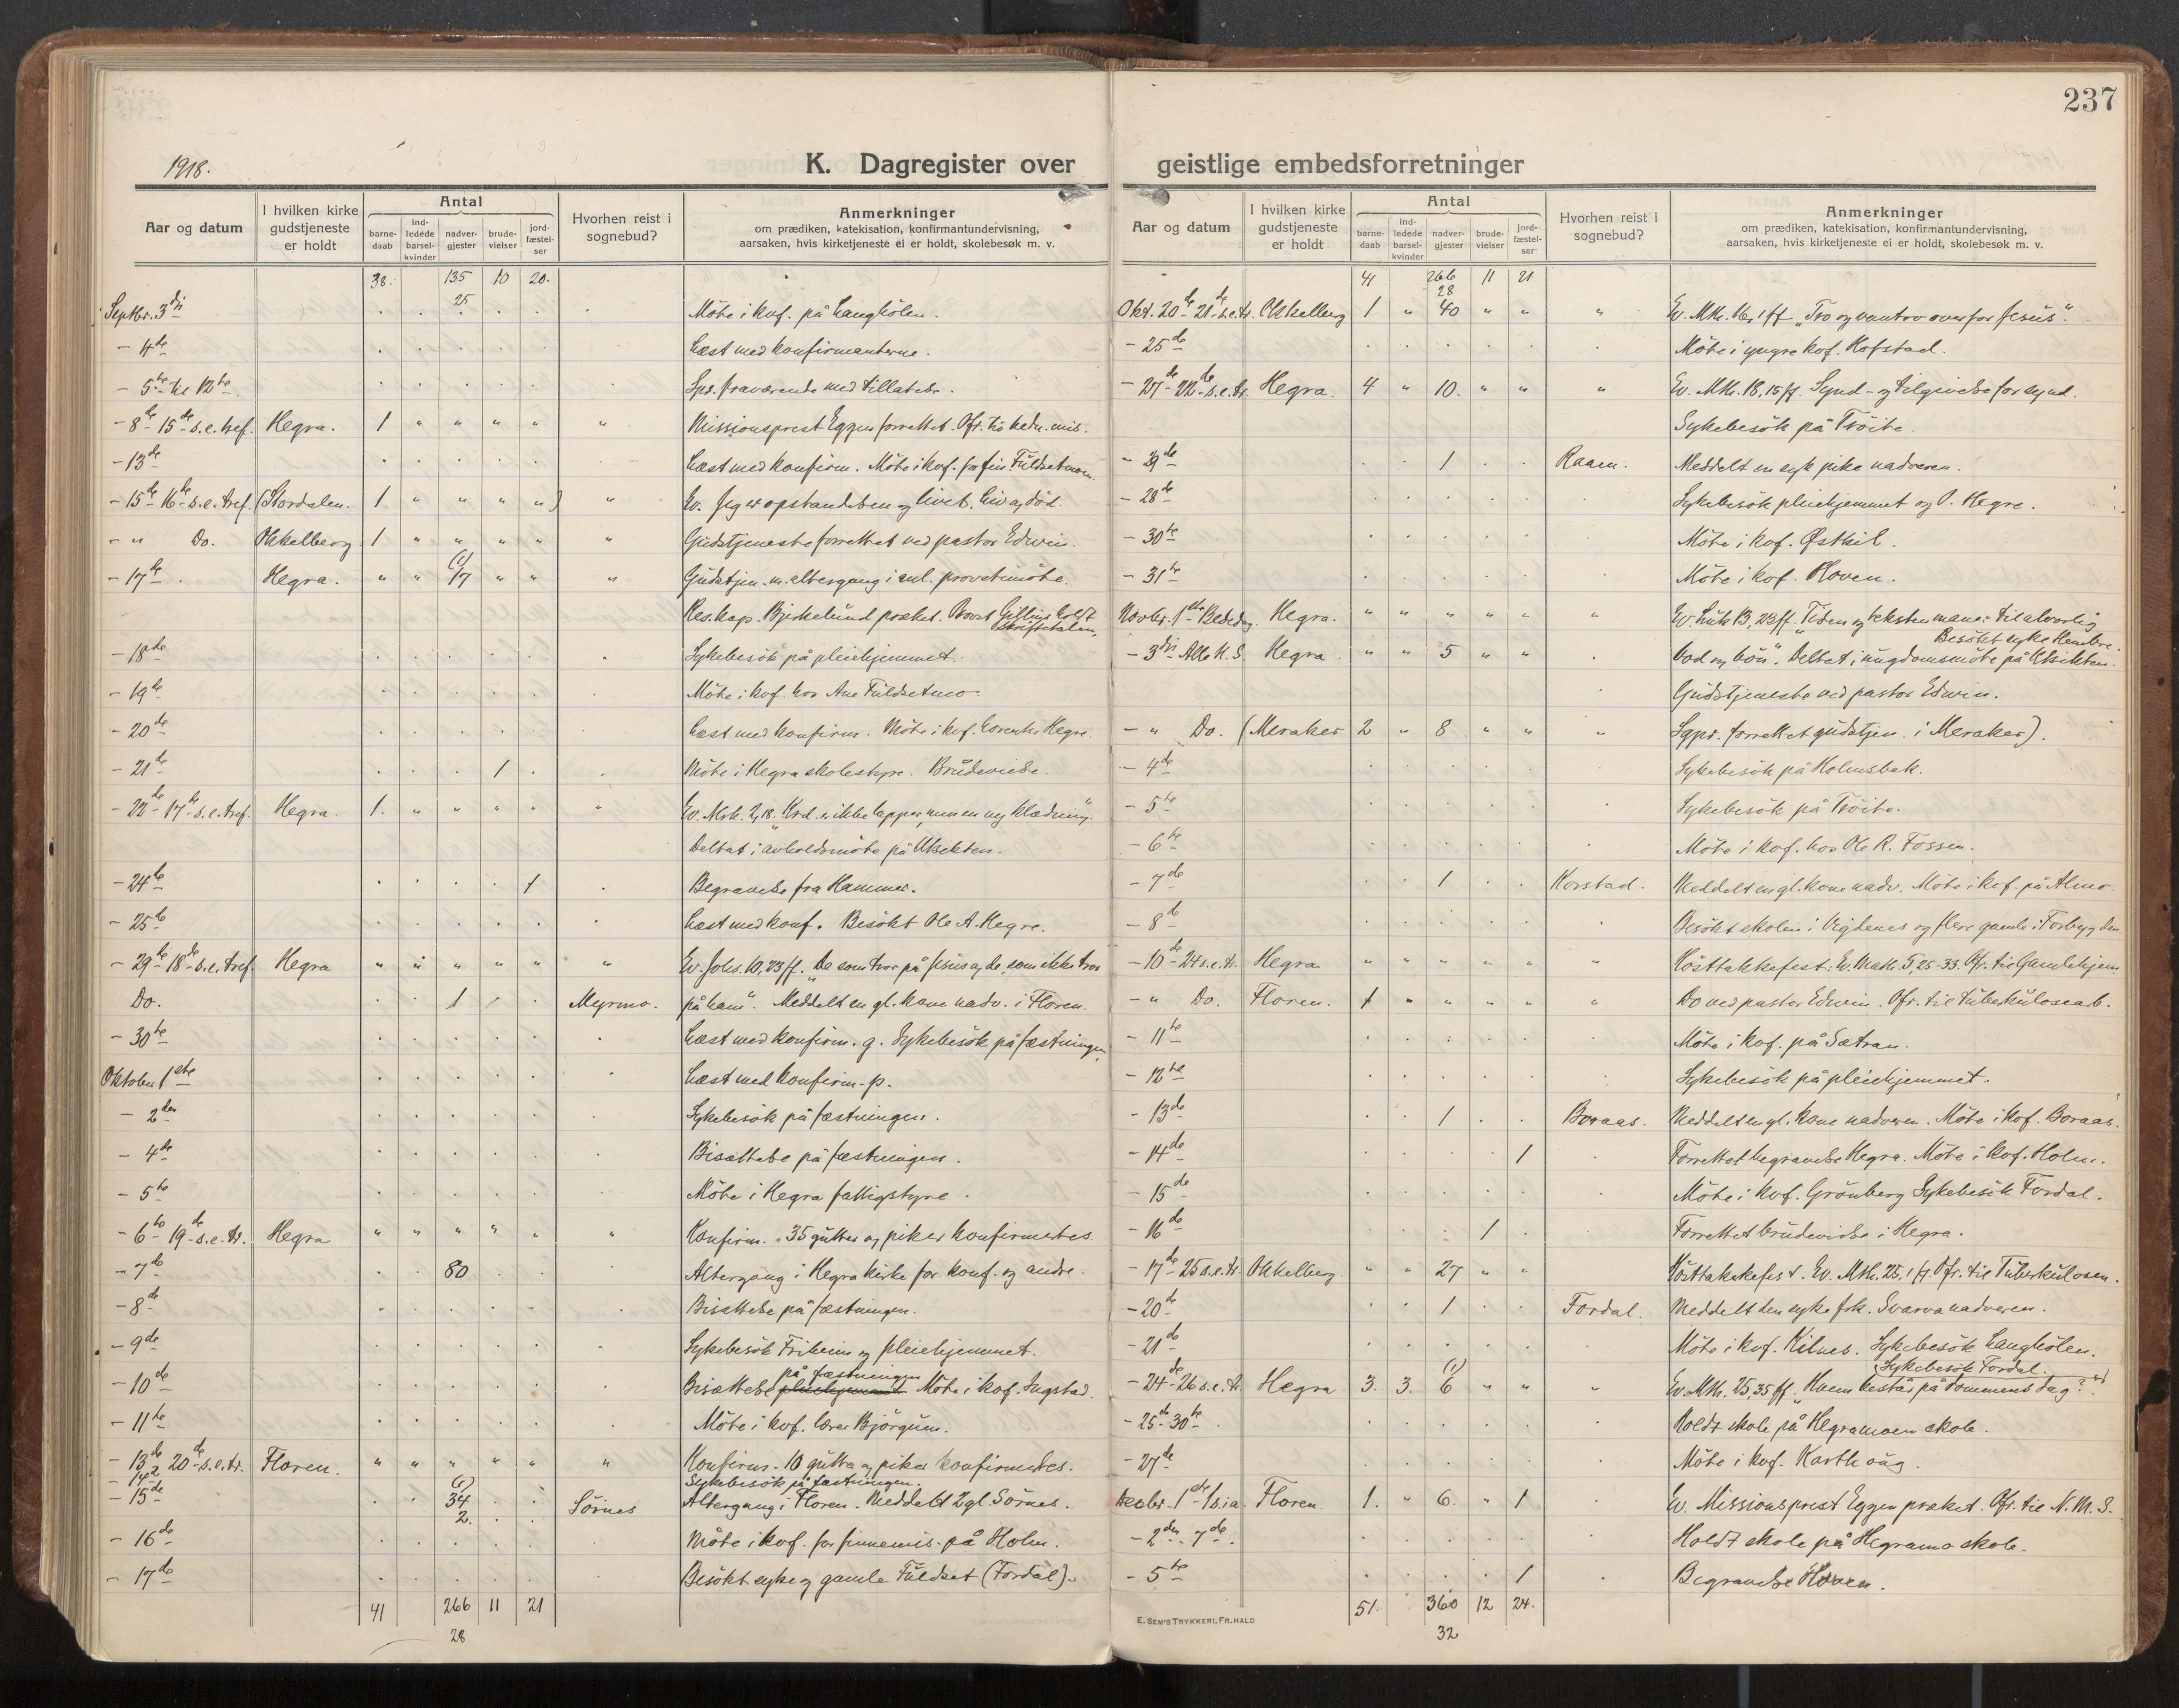 237
1918.
K. Dagregister over geistlige embedsforretninger
Aar og datum
I hvilken kirke gudstjeneste er holdt
Antal
barne-daab
ind-ledede barsel-kvinder
nadver-gjester
brude-vielser
jord-fæstel-ser
Hvorhen reist i sognebud?
Anmerkninger
om prædiken, katekisation, konfirmantundervisning,
aarsaken, hvis kirketjeneste ei er holdt, skolebesøk m. v.
38. 135 10 20.
25
Septbr. 3di Möte i kof. på Langhölen.
- 4de Læst med konfirmanterne.
- 5te til 12te Spr. fraværende med tillatelse.
- 8de 15de s.e. tref. Hegra. 1 " " " " " Missionsprest Eggen forrettet. Ofr. til hedn. mis.
- 13de Læst med konfirm. Möte i kof. for fin Fuldsetmoen.
- 15de 16de s.e. tref. (Stordalen. 1 " " " ") " Ev. Jeg er opstandelsen og livet. Liv og död.
- " Do. Okkelberg 1 " " " " " Gudstjeneste forrettet ved pastor Edwin.
(1)
- 17de Hegra. " " 17 " " " Gudstjen. m. altergang i anl. provstimöte.
Res. kap. Bjerkelund præket. Provst Gillius holdt
skriftetalen.
- 18de Sykebesök på pleiehjemmet.
- 19de Möte i kof. hos Ane Fuldsetmo.
- 20de Læst med konfirm. Möte i kof. Lorents Hegre.
- 21de 1 Möte i Hegra skolestyre. Brudevielse.
- 22de 17de s.e. tref. Hegra. 1. " " " " " Ev. Mrk. 2,18. "Krd. er ikke lapper, men en ny klædning"
Deltat i avholdsmöte på Utsikten.
- 24de 1 Begravelse fra Hammer.
- 25de Læst med konf. Besökt Ole A. Hegre.
- 29de 18de s.e. tref. Hegra " " " " " " Ev. Johs. 10, 23 ff. "De som tror på Jesus og de, som ikke tror
Do. 1 Myrmo. på ham". Meddelt en gl. kone nadv. i Floren.
- 30te Læst med konfirm. g. Sykebesök på fæstningen
Oktober 1ste Læst med konfirm. p.
- 2den Sykebesök på fæstningen.
- 4de Bisættelse på fæstningen.
- 5te Möte i Hegra fattigstyre.
- 6te 19de s.e. tr. Hegra " " " " " " Konfirm. 35 gutter og piker konfirmertes.
- 7de 80 Altergang i Hegra kirke for konf. og andre.
- 8de Bisættelse på fæstningen.
- 9de Sykebesök Friheim og pleiehjemmet.
på fæstningen
- 10de Bisættelse pleiehjemmet Möte i kof. Ingstad.
- 11te Möte i kof. lærer Björgum.
- 13de 20de s.e. tr. Floren. " " " " " " Konfirm. 10 gutter og piker konfirmertes.
- 14de Sykebesök på fæstningen.
(1)
- 15de 34 Sörnes Altergang i Floren. Meddelt 2 gl. Sörnes.
2.
- 16de Möte i kof. for finnemis. på Holm.
- 17de Besökt syke og gamle Fuldset (Fordal).
41 266 11 21
28
Aar og datum
I hvilken kirke gudstjeneste er holdt
Antal
barne-daab
ind-ledede barsel-kvinder
nadver-gjester
brude-vielser
jord-fæstel-ser
Hvorhen reist i sognebud?
Anmerkninger
om prædiken, katekisation, konfirmantundervisning,
aarsaken, hvis kirketjeneste ei er holdt, skolebesøk m. v.
41 266 11 21
28
Okt. 20de 21de s.e. tr. Okkelberg 1 " 40 " " " Ev. Mth. 16, 1 ff "Tro og vantro overfor Jesus".
- 25de Möte i yngre kof. Hofstad.
- 27de 22de s.e. tr. Hegra. 4 " 10. " " " Ev. Mth. 18, 15 ff. Synd- og tilgivelse for synd.
Sykebesök på Tröite.
- 29de 1 Raaen. Meddelt en syk pike nadveren.
- 28de Sykebesök pleiehjemmet og P. Hegre.
- 30te Möte i kof. Østkil.
- 31te Möte i kof. Hoven.
Novbr. 1ste Bededag Hegra. " " " " " " Ev. Luk 13, 23 ff. "Tiden og teksten maner til alvorlig
Besökt syke Hembre.
- 3di Alle H. D. Hegra " " 5 " " bod og bön". Deltat i ungdomsmöte på Utsikten.
Gudstjeneste ved pastor Edwin.
- " Do. (Meraker 2 " 8 " " " Sgpr. forrettet gudstjen. i Meraker).
- 4de Sykebesök på Holmsbak.
- 5te Sykebesök på Tröite.
- 6te Möte i kof. hos Ole R. Fossen.
- 7de 1 Korstad. Meddelt en gl. kone nadv. Möte i kof. på Almo.
- 8de Besökt skolen i Vigdenes og flere gamle i Forbygden.
- 10de 24 s.e. tr. Hegra " " " " " " Hösttakkefest: Ev. Math. 5, 25-33. Ofr. til Gamlehjem
- " Do. Floren. 1 " " " " " Do ved pastor Edwin. Ofr. til tuberkulosearb.
- 11te Möte i kof. på Sætran.
- 12te Sykebesök på pleiehjemmet.
- 13de 1 Boraas. Meddelt en gl. kone nadveren. Möte i kof. Boraas.
- 14de 1 Forrettet begravelse Hegra. Möte i kof. Holm.
- 15de Möte i kof. Grönberg Sykebesök Fordal.
- 16de 1 Forrettet brudevielse i Hegra.
- 17de 25 s.e. tr. Okkelberg " " 27 " " Hösttakkefest. Ev. Mth. 25, 1 ff. Ofr. til Tuberkulosen.
- 20de 1 Fordal. Meddelt den syke frk. Svarva nadveren.
- 21de Möte i kof. Kilnes. Sykebesök Langhölen.
(1) Sykebesök Fordal.
- 24de 26 s.e. tr. Hegra 3. 3. 6 " " " Ev. Mth. 25, 35 ff. "Hvem består på dommens dag?"
- 25de 30te Holdt skole på Hegramoen skole.
- 27de Möte i kof. Karthaug.
Decbr. 1ste 1 s. i a. Floren 1. " 6. " 1 Ev. Missionsprest Eggen præket. Ofr. til N. M. S.
- 2den 7de Holdt skole på Hegramo skole.
- 5te 1 Begravelse Hoven.
51. 360 12 24.
32
E. SEM'S TRYKKERI, FR.HALD